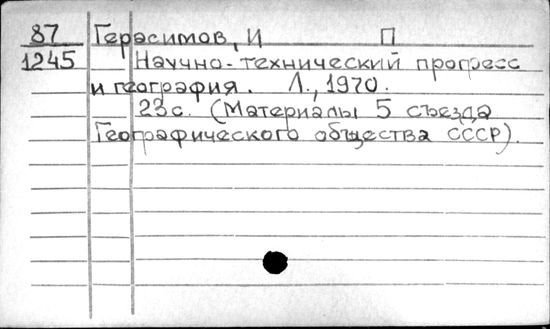 87 Герасимов, И П
1245 Научно-технический прогресс
и география. Л., 1970.
23с. (Материалы 5 съезда
Географического общества СССР).